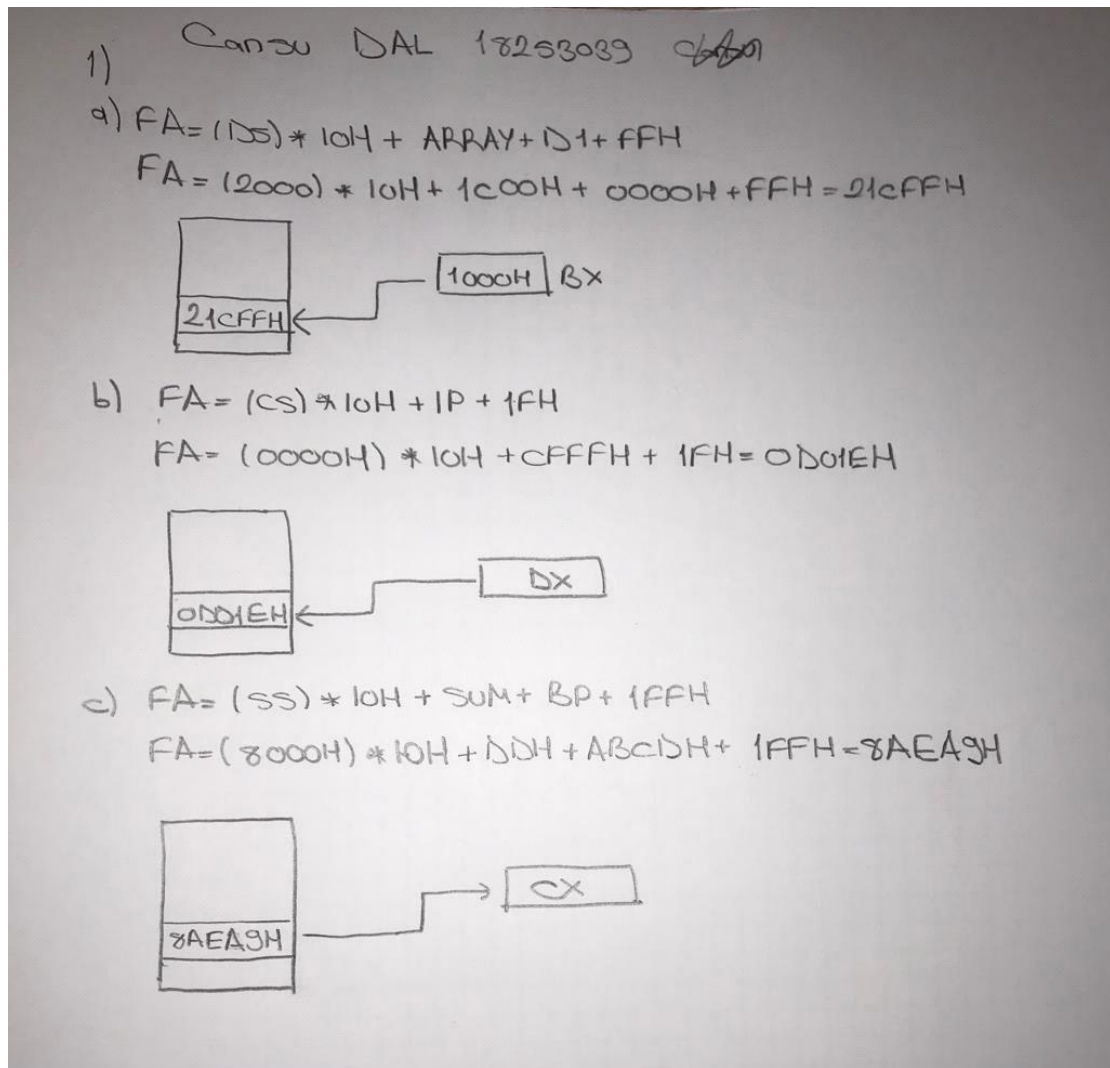 Cansu DAL 18253039
1)
a) FA=(DS)* 10H + ARRAY+ D1+ FFH
FA=(2000) * 10H+ 1C00H + 0000H +FFH = 21CFFH
1000H BX
21CFFH
b) FA= (CS) * 10H + IP + 1FH
FA= (0000H) * 10H +CFFFH + 1FH= 0D01EH
DX
0D01EH
c) FA= (SS) * 10H + SUM+ BP+ 1FFH
FA=(8000H) * 10H + DDH + ABCDH+ 1FFH=8AEA9H
CX
8AEA9H